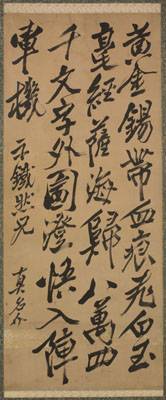 黄金錫帶血痕花白玉
毫經薩海歸八萬四
千文字外圓澄悟入陣
軍機 示鐵狀兄